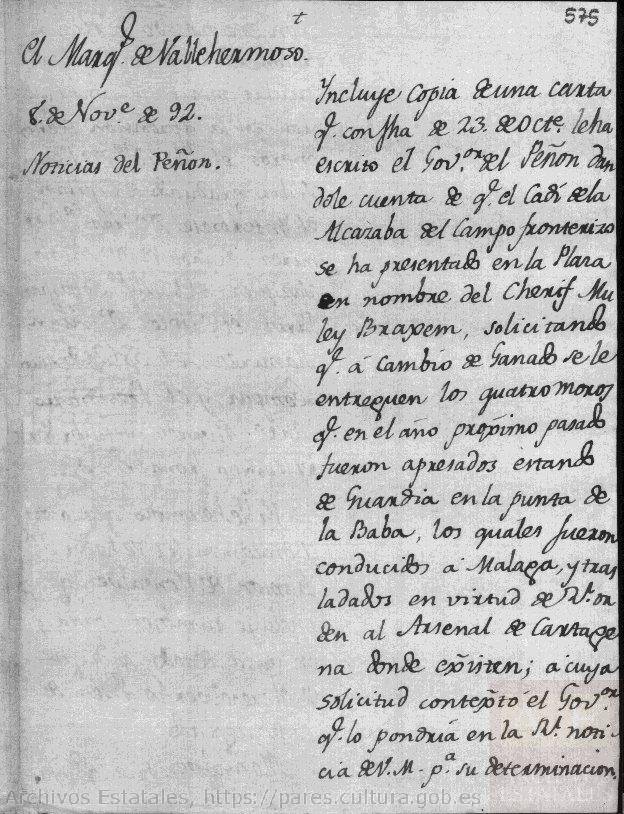 †
575
El Marq.s de Vallehermoso.
8. de Nov.e de 92.
Noticias del Peñon.
Incluye copia de una carta
q.e con fha de 23. de Oct.e le ha
escrito el Gov.or del Peñon dan
dole cuenta de q.e el Cadí de la
Alcazaba del Campo fronterizo
se ha presentado en la Plaza
en nombre del Cherif Mu
ley Braxem, solicitando
q.e á cambio de Ganado se le
entreguen los quatro moros
q.e en el año próximo pasado
fueron apresados estando
de Guardia en la punta de
la Baba, los quales fueron
conducidos á Malaga, y tras
ladados en virtud de R.l or
den al Arsenal de Cartage
na donde exîsten; á cuya
solicitud contextó el Gov.or
q.e lo pondriá en la R.l noti-
cia de V.M. p.a su determinacion.
Archivos Estatales, https://pares.cultura.gob.es